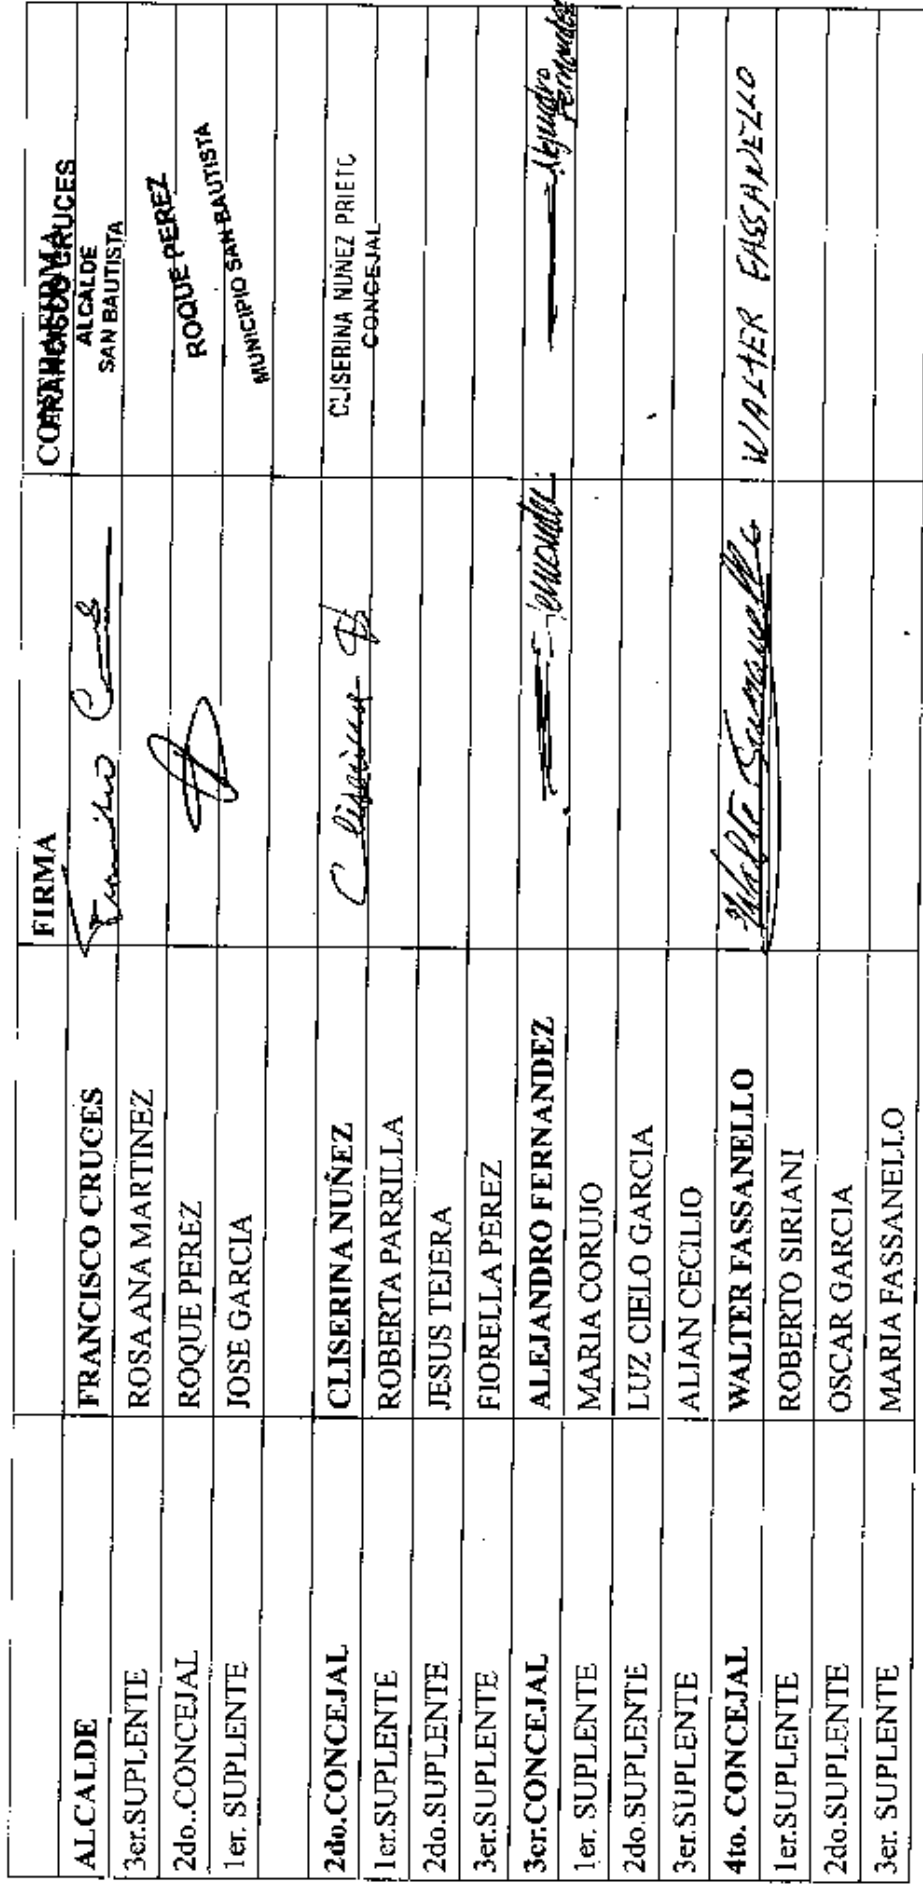 FIRMA CONTRAFIRMA
ALCALDE FRANCISCO CRUCES Francisco Cruces FRANCISCO CRUCES
ALCALDE
SAN BAUTISTA
3er.SUPLENTE ROSA ANA MARTINEZ
2do..CONCEJAL ROQUE PEREZ ROQUE PEREZ
MUNICIPIO SAN BAUTISTA
1er. SUPLENTE JOSE GARCIA
2do.CONCEJAL CLISERINA NUÑEZ Cliserina CLISERINA NUÑEZ PRIETO
CONCEJAL
1er.SUPLENTE ROBERTA PARRILLA
2do.SUPLENTE JESUS TEJERA
3er.SUPLENTE FIORELLA PEREZ
3er.CONCEJAL ALEJANDRO FERNANDEZ Fernandez Alejandro
Fernandez
1er. SUPLENTE MARIA CORUJO
2do.SUPLENTE LUZ CIELO GARCIA
3er.SUPLENTE ALIAN CECILIO
4to. CONCEJAL WALTER FASSANELLO Walter Fassanello WALTER FASSANELLO
1er.SUPLENTE ROBERTO SIRIANI
2do.SUPLENTE OSCAR GARCIA
3er. SUPLENTE MARIA FASSANELLO